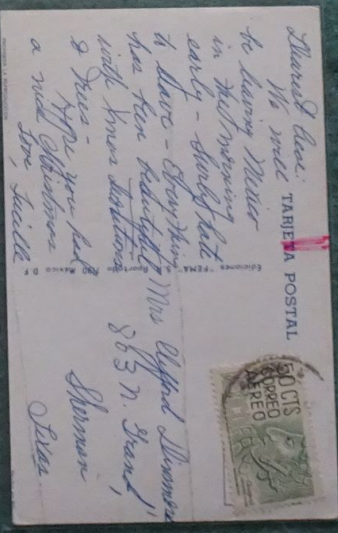 Dearest
We will
be leaving Mexico
in the morning
early – Surely hate
to leave – Everything
has been beautiful
with Xmas
& Trees –
Hope you had
a nice Christmas
Love, Lucille
TARJETA POSTAL
Ediciones "FEMA" México D F
Mrs Clifford
803 N. Grand
Sherman
Texas
50 CTS
CORREO
AEREO